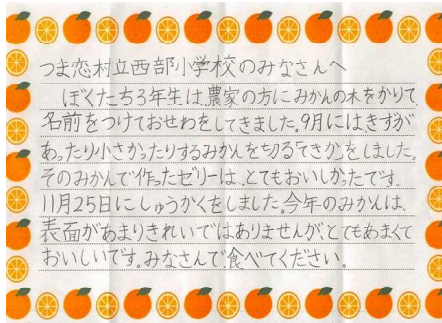 つま恋村立西部小学校のみなさんへ
ぼくたち3年生は、農家の方にみかんの木をかりて、
名前をつけておせわをしてきました。9月にはきずが
あったり小さかったりするみかんを切る「てきか」をしました。
そのみかんで作ったゼリーは、とてもおいしかったです。
11月25日にしゅうかくをしました。今年のみかんは、
表面があまりきれいではありませんがとてもあまくて
おいしいです。みなさんで食べてください。